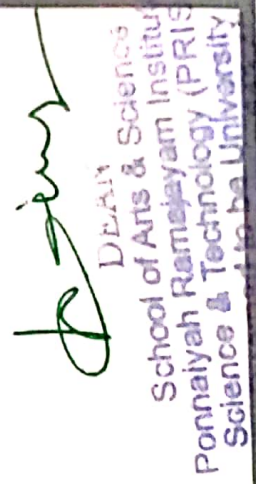 DEAN
School of Arts & Science
Ponnaiyah Ramajayam Institu
Science & Technology (PRIS
to be University